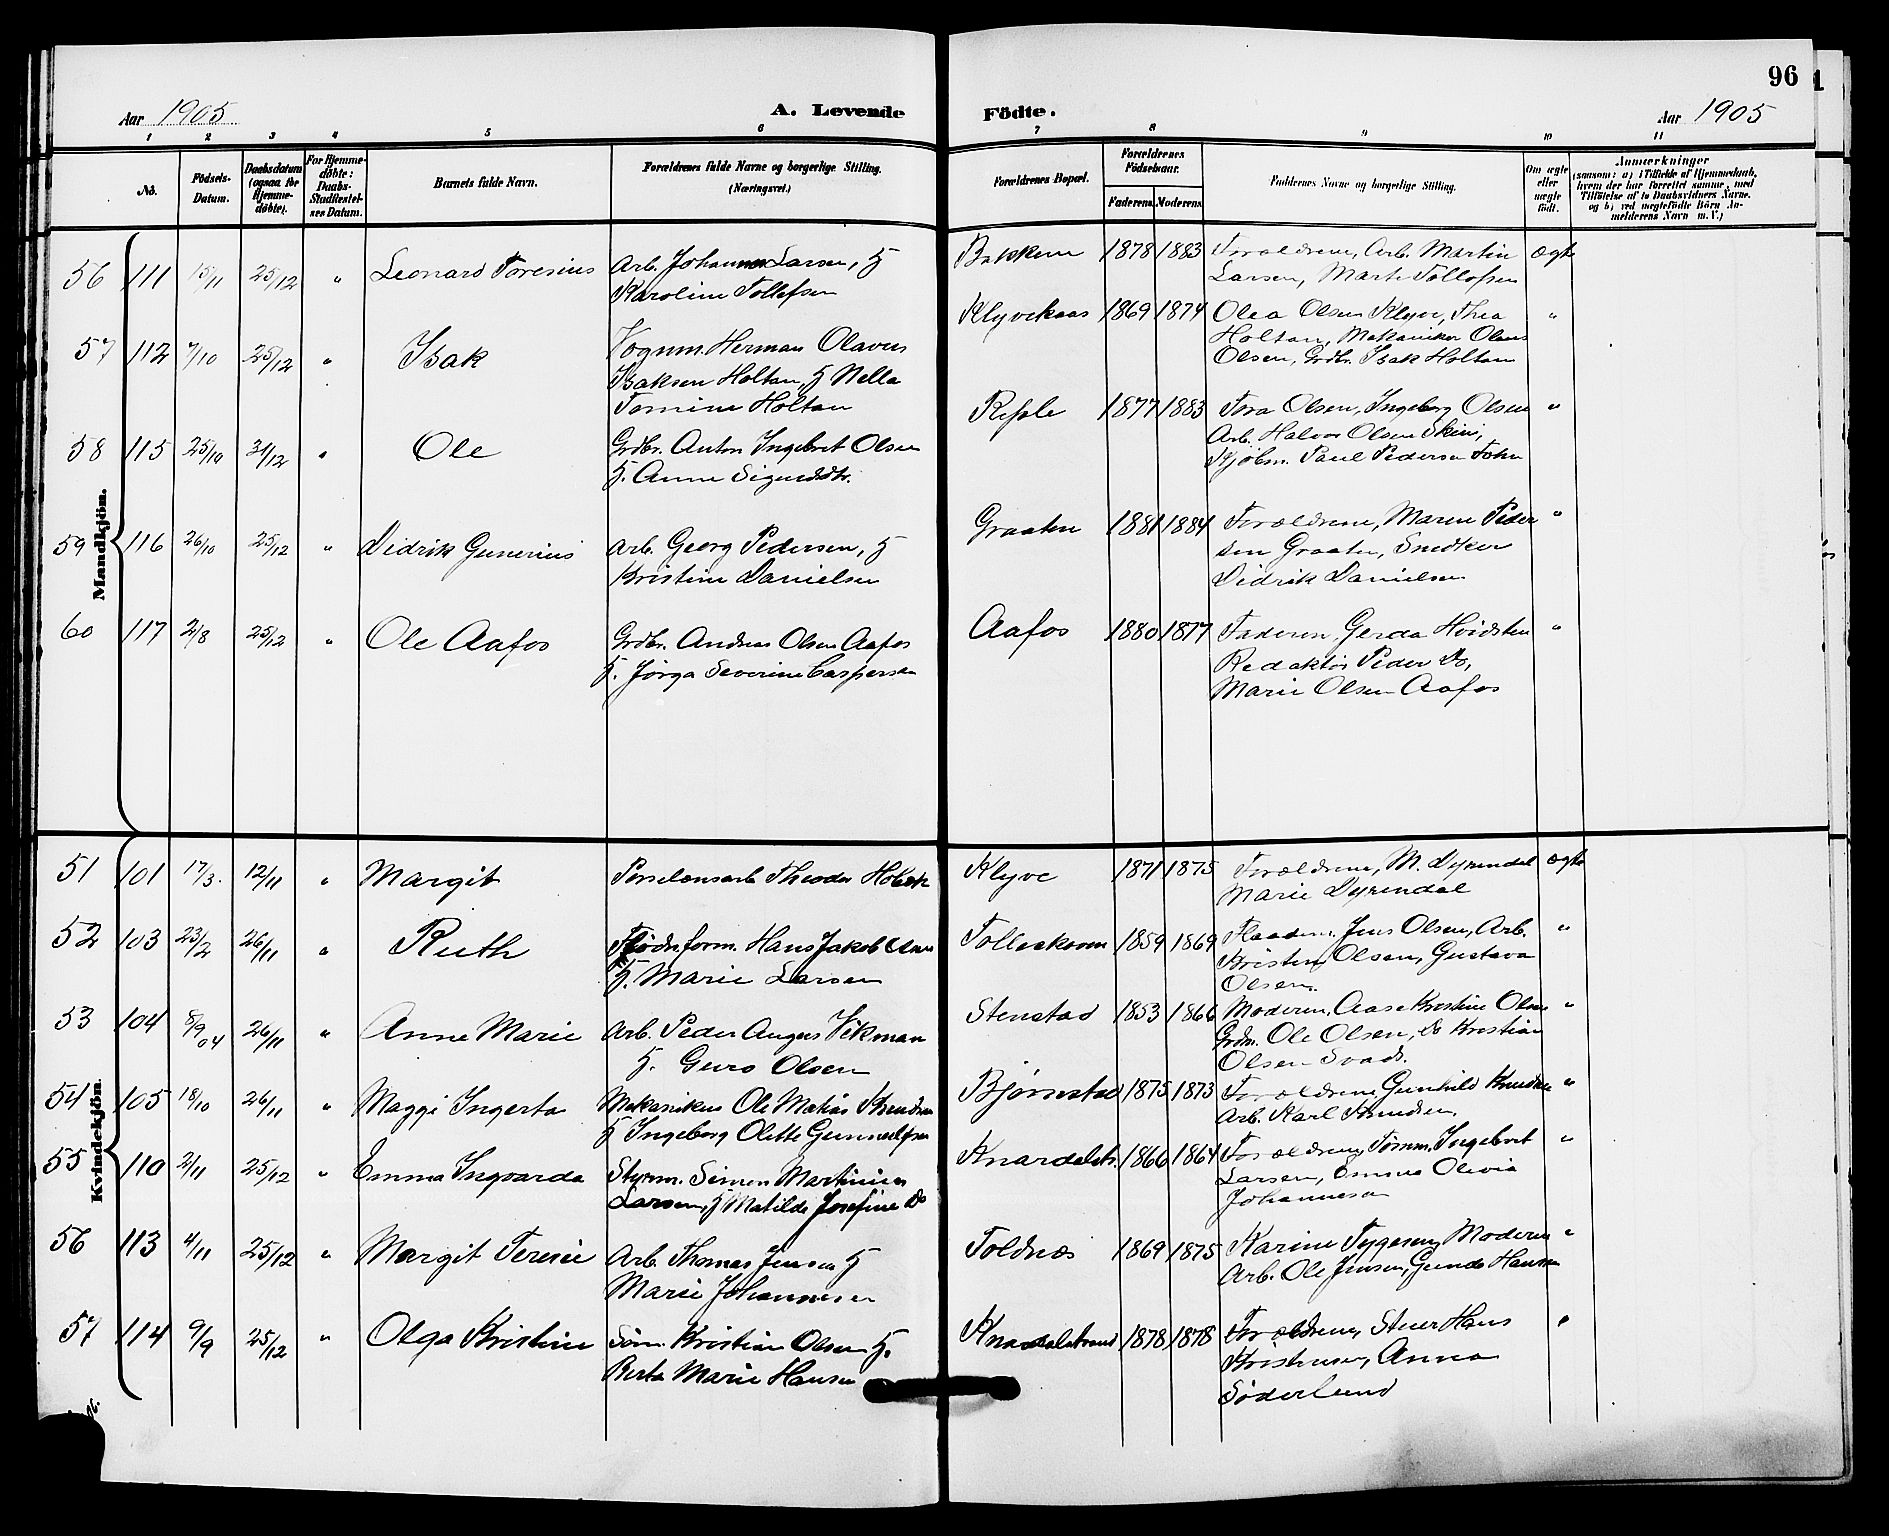 96
Aar 1905 A. Levende Födte. Aar 1905
1 2 3 4 5 6 7 8 9 10 11
No. Födsels-Datum. Daabsdatum (ogsaa for Hjemmedöbte). For Hjemmedöbte: Daabs-Stadfæstelses Datum. Barnets fulde Navn. Forældrenes fulde Navne og borgerlige Stilling. (Næringsvei.) Forældrenes Bopæl. Forældrenes Födselsaar. Faderens. Moderens. Faddernes Navne og borgerlige Stilling. Om ægte eller uægte födt. Anmærkninger
(saasom: a) i Tilfælde af Hjemmedaab, hvem der har forrettet samme, med Tilföielse af to Daabsvidners Navne. og b) ved uægtefödte Börn Anmelderens Navn m. V.)
Mandkjön.
56 111 15/11 25/12 " Leonard Toresius Arb. Johannes Larsen, H Bakken 1878 1883 Forældrene, Arb. Martin ægte
Karoline Tollefsen Larsen, Marte Tollofsen
57 112 7/10 25/12 " Isak Vognm. Herman Olavus Klyvekaas 1869 1874 Olea Olsen Klyve, Thea "
Isaksen Holtan, H Nella Holtan, Mekaniker Olaus
Tomine Holtan Olsen, Grdbr. Isak Holtan
58 115 25/10 31/12 " Ole Grdbr. Anton Ingebret Olsen 1877 1883 Tora Olsen, Ingeborg Olsen "
H. Anne Sigurdsdtr. Arb. Halvor Olsen Skini,
Kjøbm. Paul Pedersen
59 116 26/10 25/12 " Didrik Gunerius Arb. Georg Pedersen, H Graaten 1881 1884 Forældrene, Maren Peder "
Kristine Danielsen sen Graaten, Snedker
Didrik Danielsen
60 117 2/8 25/12 " Ole Aafos Grdbr. Andreas Olsen Aafos Aafos 1880 1877 Faderen, Gerda Hvidsten "
H. Jørga Severine Caspersen Redaktør Peder Do,
Marie Olsen Aafos
Kvindekjön.
51 101 17/3. 12/11 " Margit Porselænsarb Theodor Klyve 1871 1875 Forældrene, M. Dyrendal ægte
Marie Dyrendal
52 103 23/2 26/11 " Ruth Hans Jakob Tolleskaven 1859 1869 Jens Olsen, Arb. "
H. Marie Larsen Kristen Olsen, Gustava
Olsen.
53 104 8/9 04 26/11 " Anne Marie Arb. Peder August Vikman Stenstad 1853 1866 Moderen, Aase Kristine Olsen "
H. Guro Olsen Ole Olsen, Do Kristian
Olsen
54 105 18/10 26/11 " Maggi Ingerta Mekanikus Ole Matias Knudsen Bjørnstad 1875 1873 Forældrene Gunhild Knudsen "
H Ingeborg Olette Gunnulfsen Arb. Karl Knudsen.
55 110 2/11 25/12 " Emma Ingvarda Styrm. Simon Martinius Knardalstr. 1866 1864 Forældrene, Tømm. Ingebret "
Larsen, H Matilde Josefine Do Larsen, Emma Olivia
Johannesen
56 113 4/11 25/12 " Margit Teresie Arb. Thomas Jensen H Toldnæs 1869 1875 Karine Tygesen, Moderen "
Marie Johannesen Arb. Ole Jensen, Gunda Hansen
57 114 9/9 25/12 " Olga Kristine Søm. Kristian Olsen H. Knardalstrand 1878 1878 Forældrene, Stuer Hans "
Berta Marie Hansen Kristensen, Anna
Søderlund